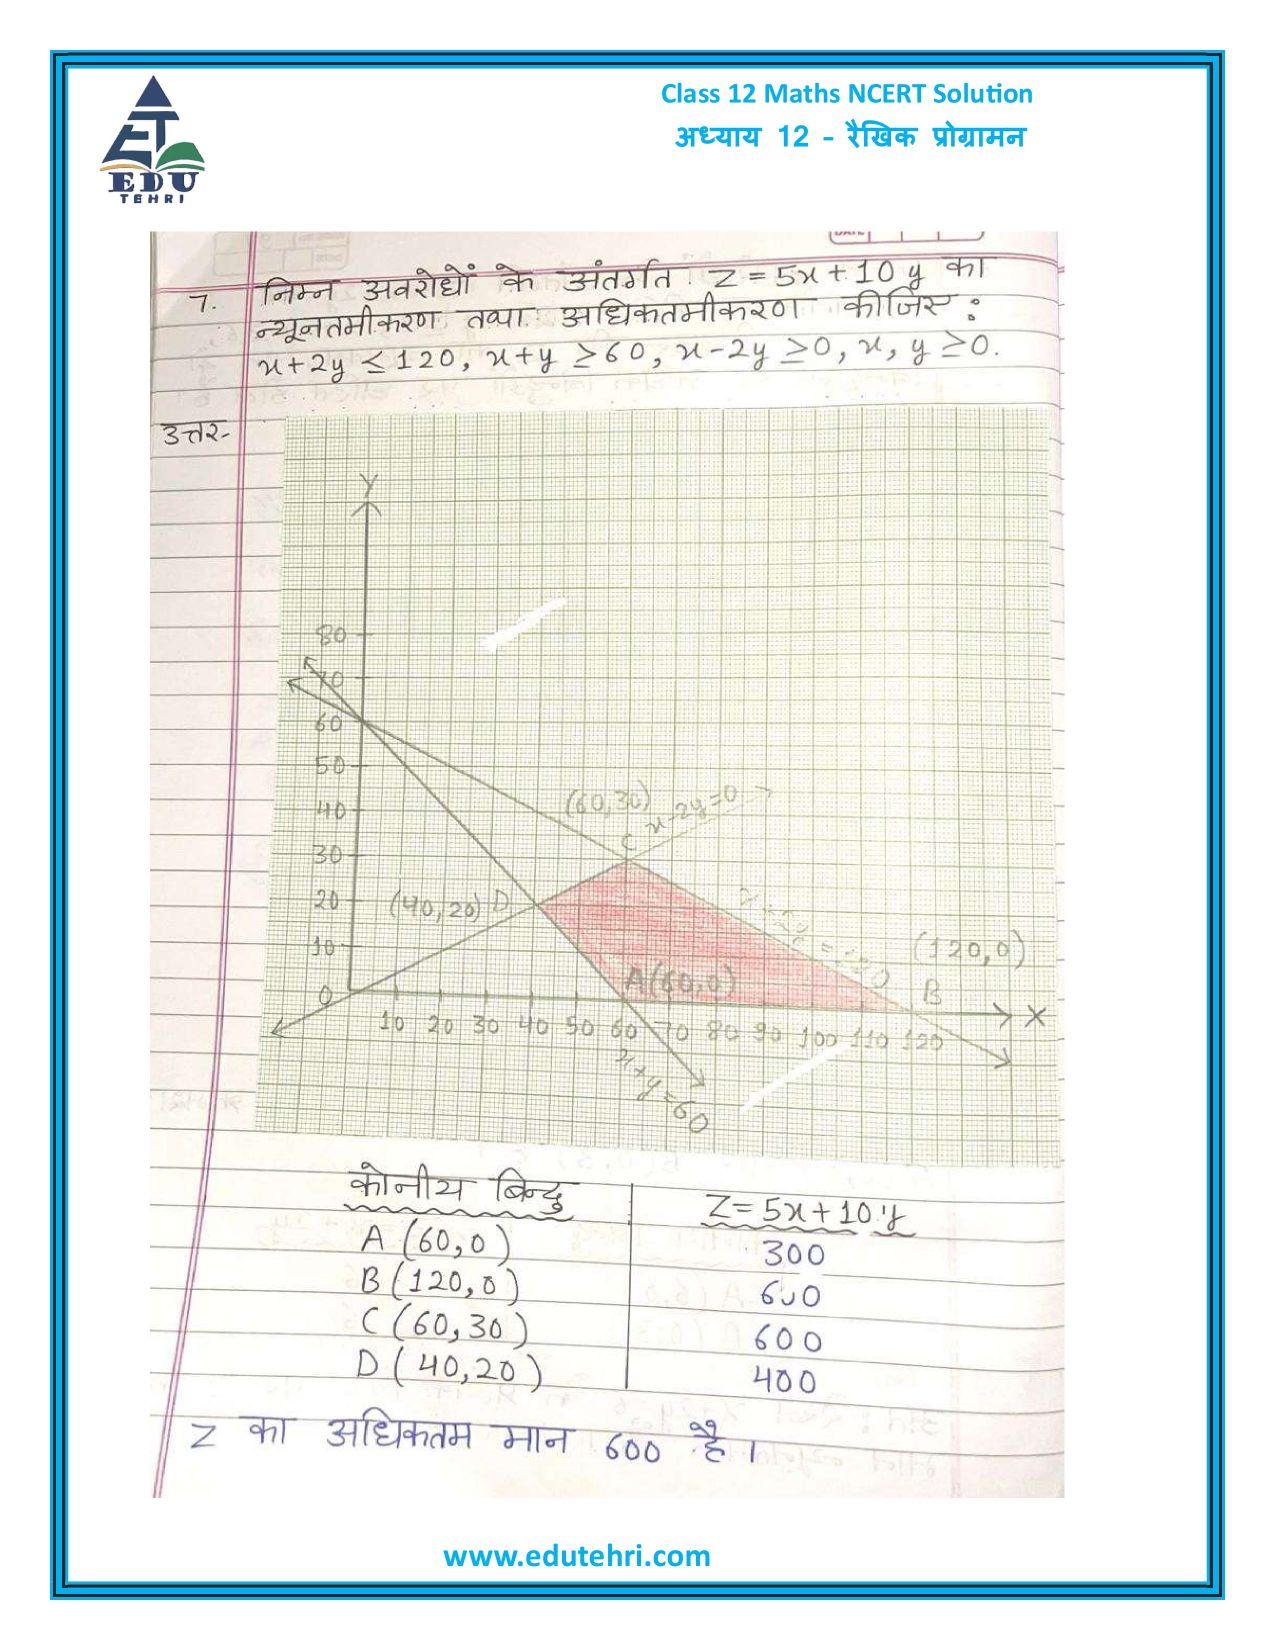 Class 12 Maths NCERT Solution
अध्याय 12 - रैखिक प्रोग्रामन
ET
EDU
TEHRI
7. निम्न अवरोधों के अंतर्गत Z = 5x + 10y का
न्यूनतमीकरण तथा अधिकतमीकरण कीजिए :
x + 2y ≤ 120, x + y ≥ 60, x - 2y ≥ 0, x, y ≥ 0.
उत्तर-
Y
80
70
60
50
40
30
20
10
0
(60,30)
x-2y=0
C
(40,20) D
(120,0)
A(60,0)
B
X
10 20 30 40 50 60 70 80 90 100 110 120
x+y=60
कोनीय बिन्दु Z = 5x + 10y
A (60,0) 300
B (120,0) 600
C (60,30) 600
D (40,20) 400
Z का अधिकतम मान 600 है ।
www.edutehri.com